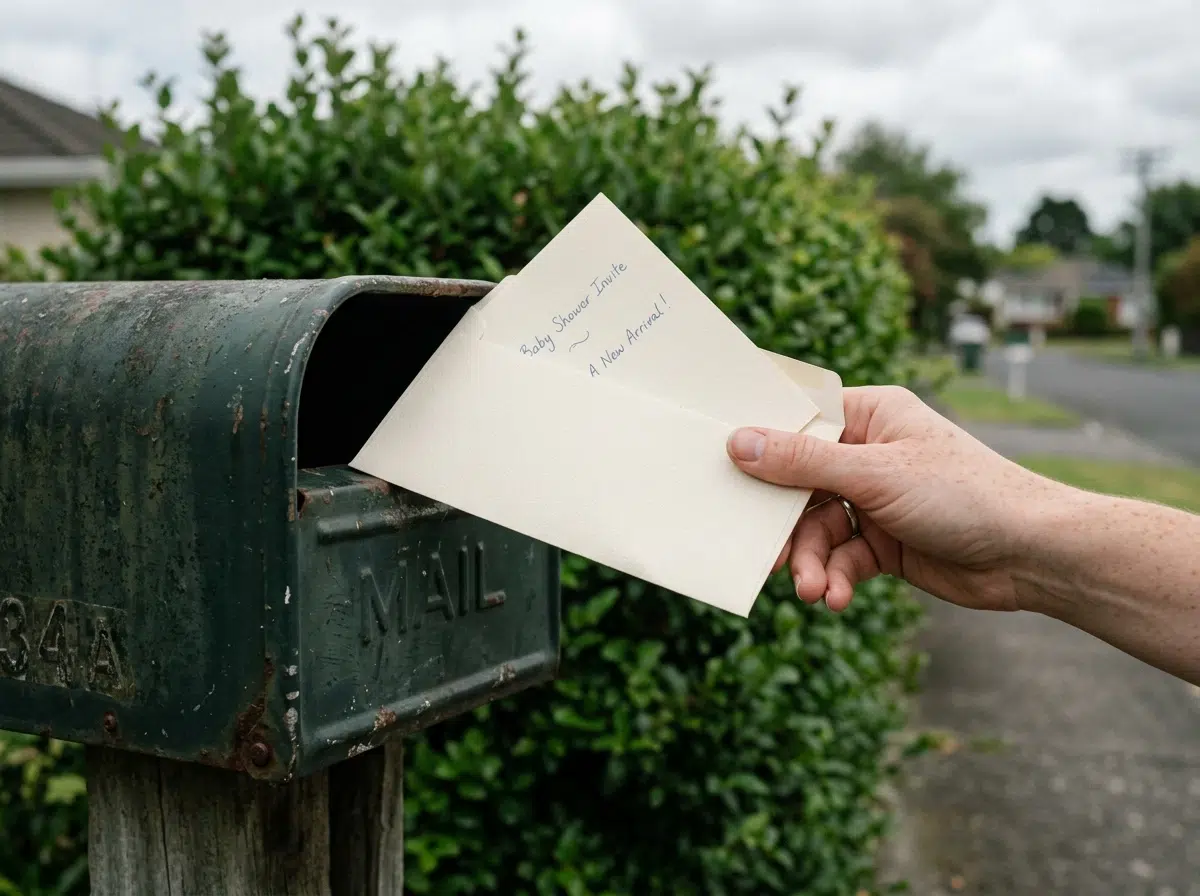 Baby Shower Invite
~
A New Arrival!
MAIL
34A